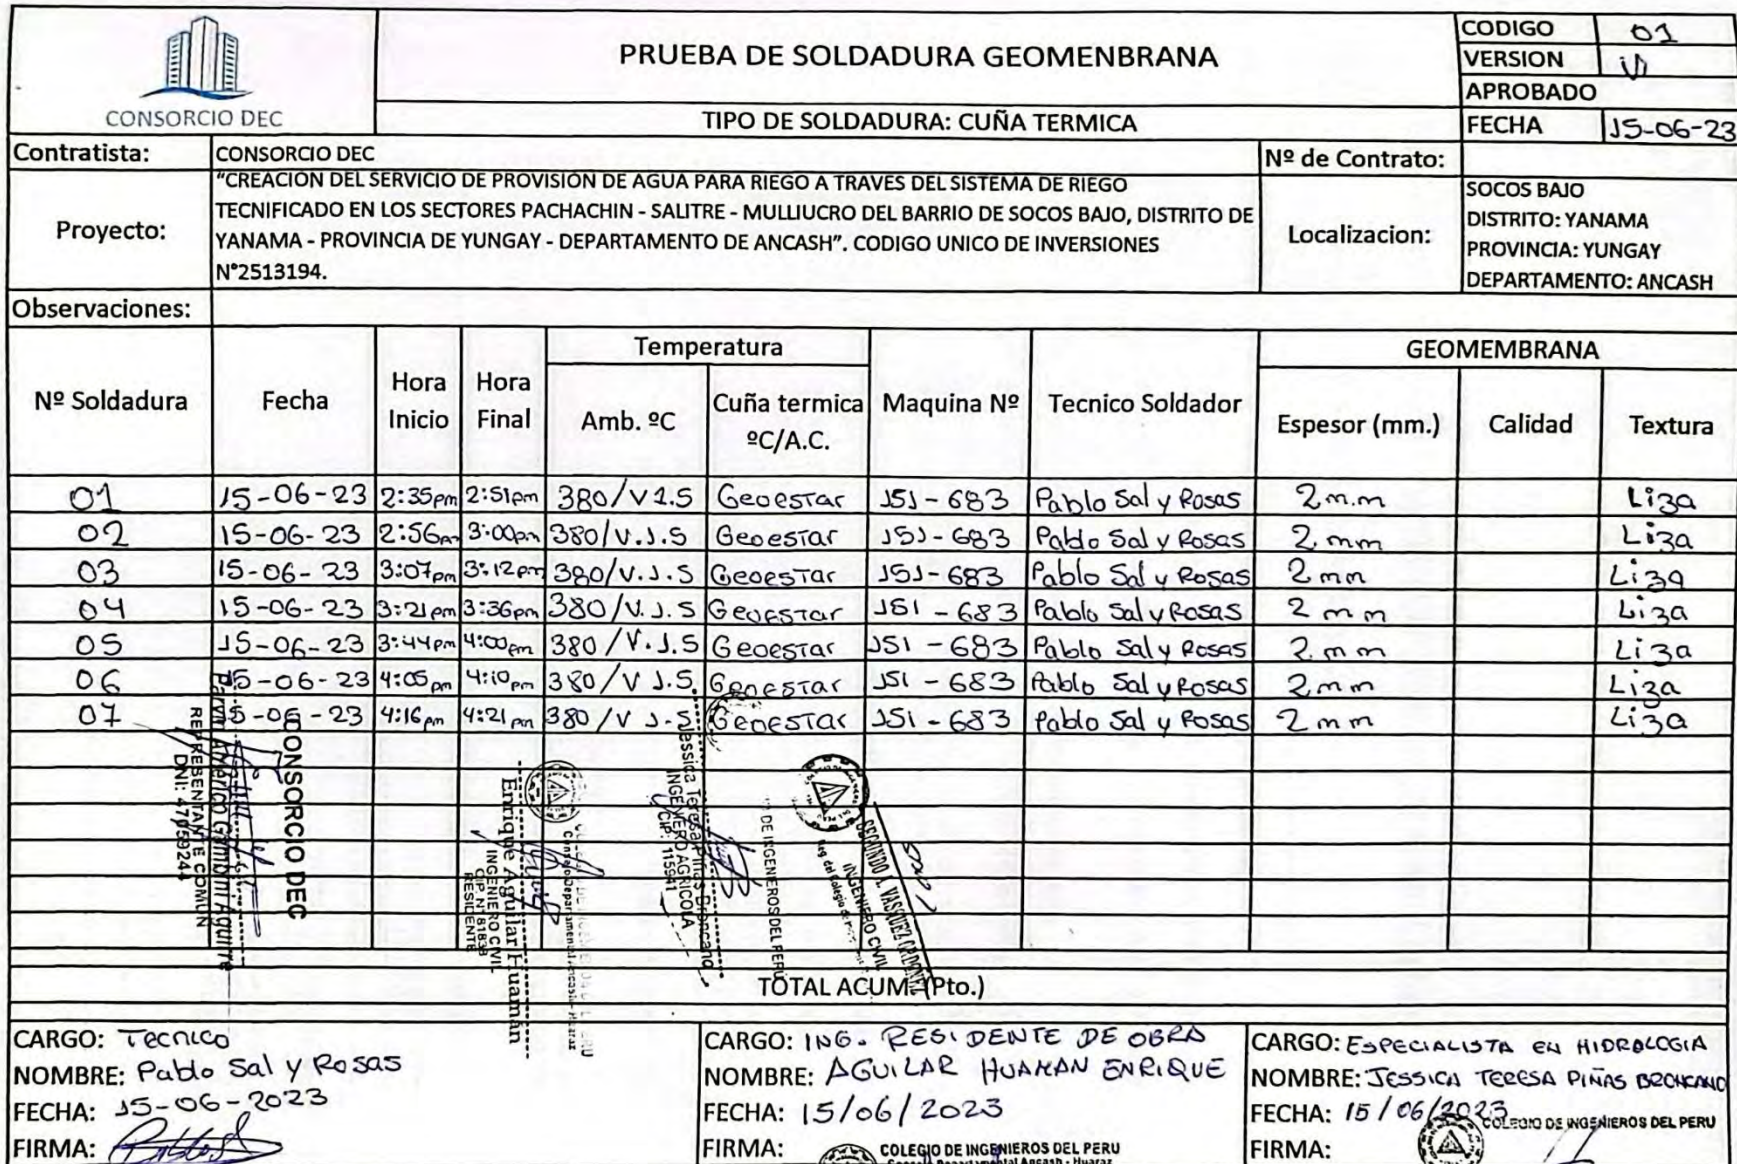 CONSORCIO DEC
PRUEBA DE SOLDADURA GEOMENBRANA
TIPO DE SOLDADURA: CUÑA TERMICA
CODIGO 01
VERSION
APROBADO
FECHA 15-06-23
Contratista: CONSORCIO DEC
Nº de Contrato:
Proyecto:
"CREACION DEL SERVICIO DE PROVISION DE AGUA PARA RIEGO A TRAVES DEL SISTEMA DE RIEGO
TECNIFICADO EN LOS SECTORES PACHACHIN - SALITRE - MULLIUCRO DEL BARRIO DE SOCOS BAJO, DISTRITO DE
YANAMA - PROVINCIA DE YUNGAY - DEPARTAMENTO DE ANCASH". CODIGO UNICO DE INVERSIONES
N°2513194.
Localizacion:
SOCOS BAJO
DISTRITO: YANAMA
PROVINCIA: YUNGAY
DEPARTAMENTO: ANCASH
Observaciones:
Nº Soldadura
Fecha
Hora Inicio
Hora Final
Temperatura
Amb. ºC
Cuña termica ºC/A.C.
Maquina Nº
Tecnico Soldador
GEOMEMBRANA
Espesor (mm.)
Calidad
Textura
01 15-06-23 2:35pm 2:51pm 380/V1.5 Geoestar 151-683 Pablo Sal y Rosas 2m.m Liza
02 15-06-23 2:56pm 3:00pm 380/V.1.5 Geoestar 151-683 Pablo Sal y Rosas 2 mm Liza
03 15-06-23 3:07pm 3:12pm 380/V.1.5 Geoestar 151-683 Pablo Sal y Rosas 2 mm Liza
04 15-06-23 3:21pm 3:36pm 380/V.1.5 Geoestar 151-683 Pablo Sal y Rosas 2 mm Liza
05 15-06-23 3:44pm 4:00pm 380/V.1.5 Geoestar 151-683 Pablo Sal y Rosas 2 mm Liza
06 15-06-23 4:05pm 4:10pm 380/V 1.5 Geoestar 151-683 Pablo Sal y Rosas 2mm Liza
07 15-06-23 4:16pm 4:21pm 380/V 1.5 Geoestar 151-683 Pablo Sal y Rosas 2mm Liza
CONSORCIO DEC
Américo Gambini Aguirre
REPRESENTANTE COMUN
DNI: 47059244
Consejo Departamental Ancash - Huaraz
Enrique Aguilar Huaman
INGENIERO CIVIL
RESIDENTE
DE INGENIEROS DEL PERÚ
Jessica Teresa Piñas Broncano
INGENIERO AGRICOLA
CIP: 115941
SEGUNDO A. VASQUEZ
INGENIERO CIVIL
Reg. del Colegio de
TOTAL ACUM. (Pto.)
CARGO: Tecnico
NOMBRE: Pablo Sal y Rosas
FECHA: 15-06-2023
FIRMA:
CARGO: ING. RESIDENTE DE OBRA
NOMBRE: AGUILAR HUAMAN ENRIQUE
FECHA: 15/06/2023
FIRMA:
COLEGIO DE INGENIEROS DEL PERU
Consejo Departamental Ancash - Huaraz
CARGO: ESPECIALISTA EN HIDROLOGIA
NOMBRE: JESSICA TERESA PIÑAS BRONCANO
FECHA: 15/06/2023
FIRMA:
COLEGIO DE INGENIEROS DEL PERU